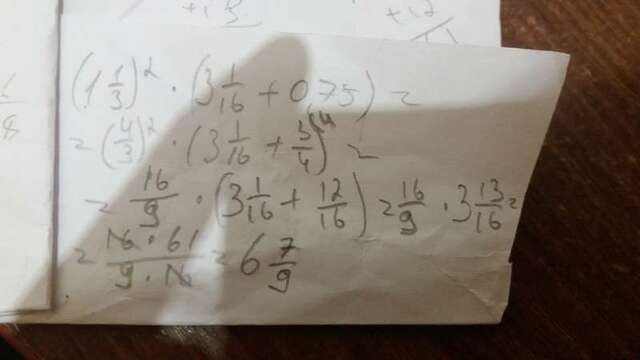 (1 1/3)² · (3 1/16 + 0,75) =
= (4/3)² · (3 1/16 + 3/4 \4) =
= 16/9 · (3 1/16 + 12/16) = 16/9 · 3 13/16 =
= 16·61 / 9·16 = 6 7/9